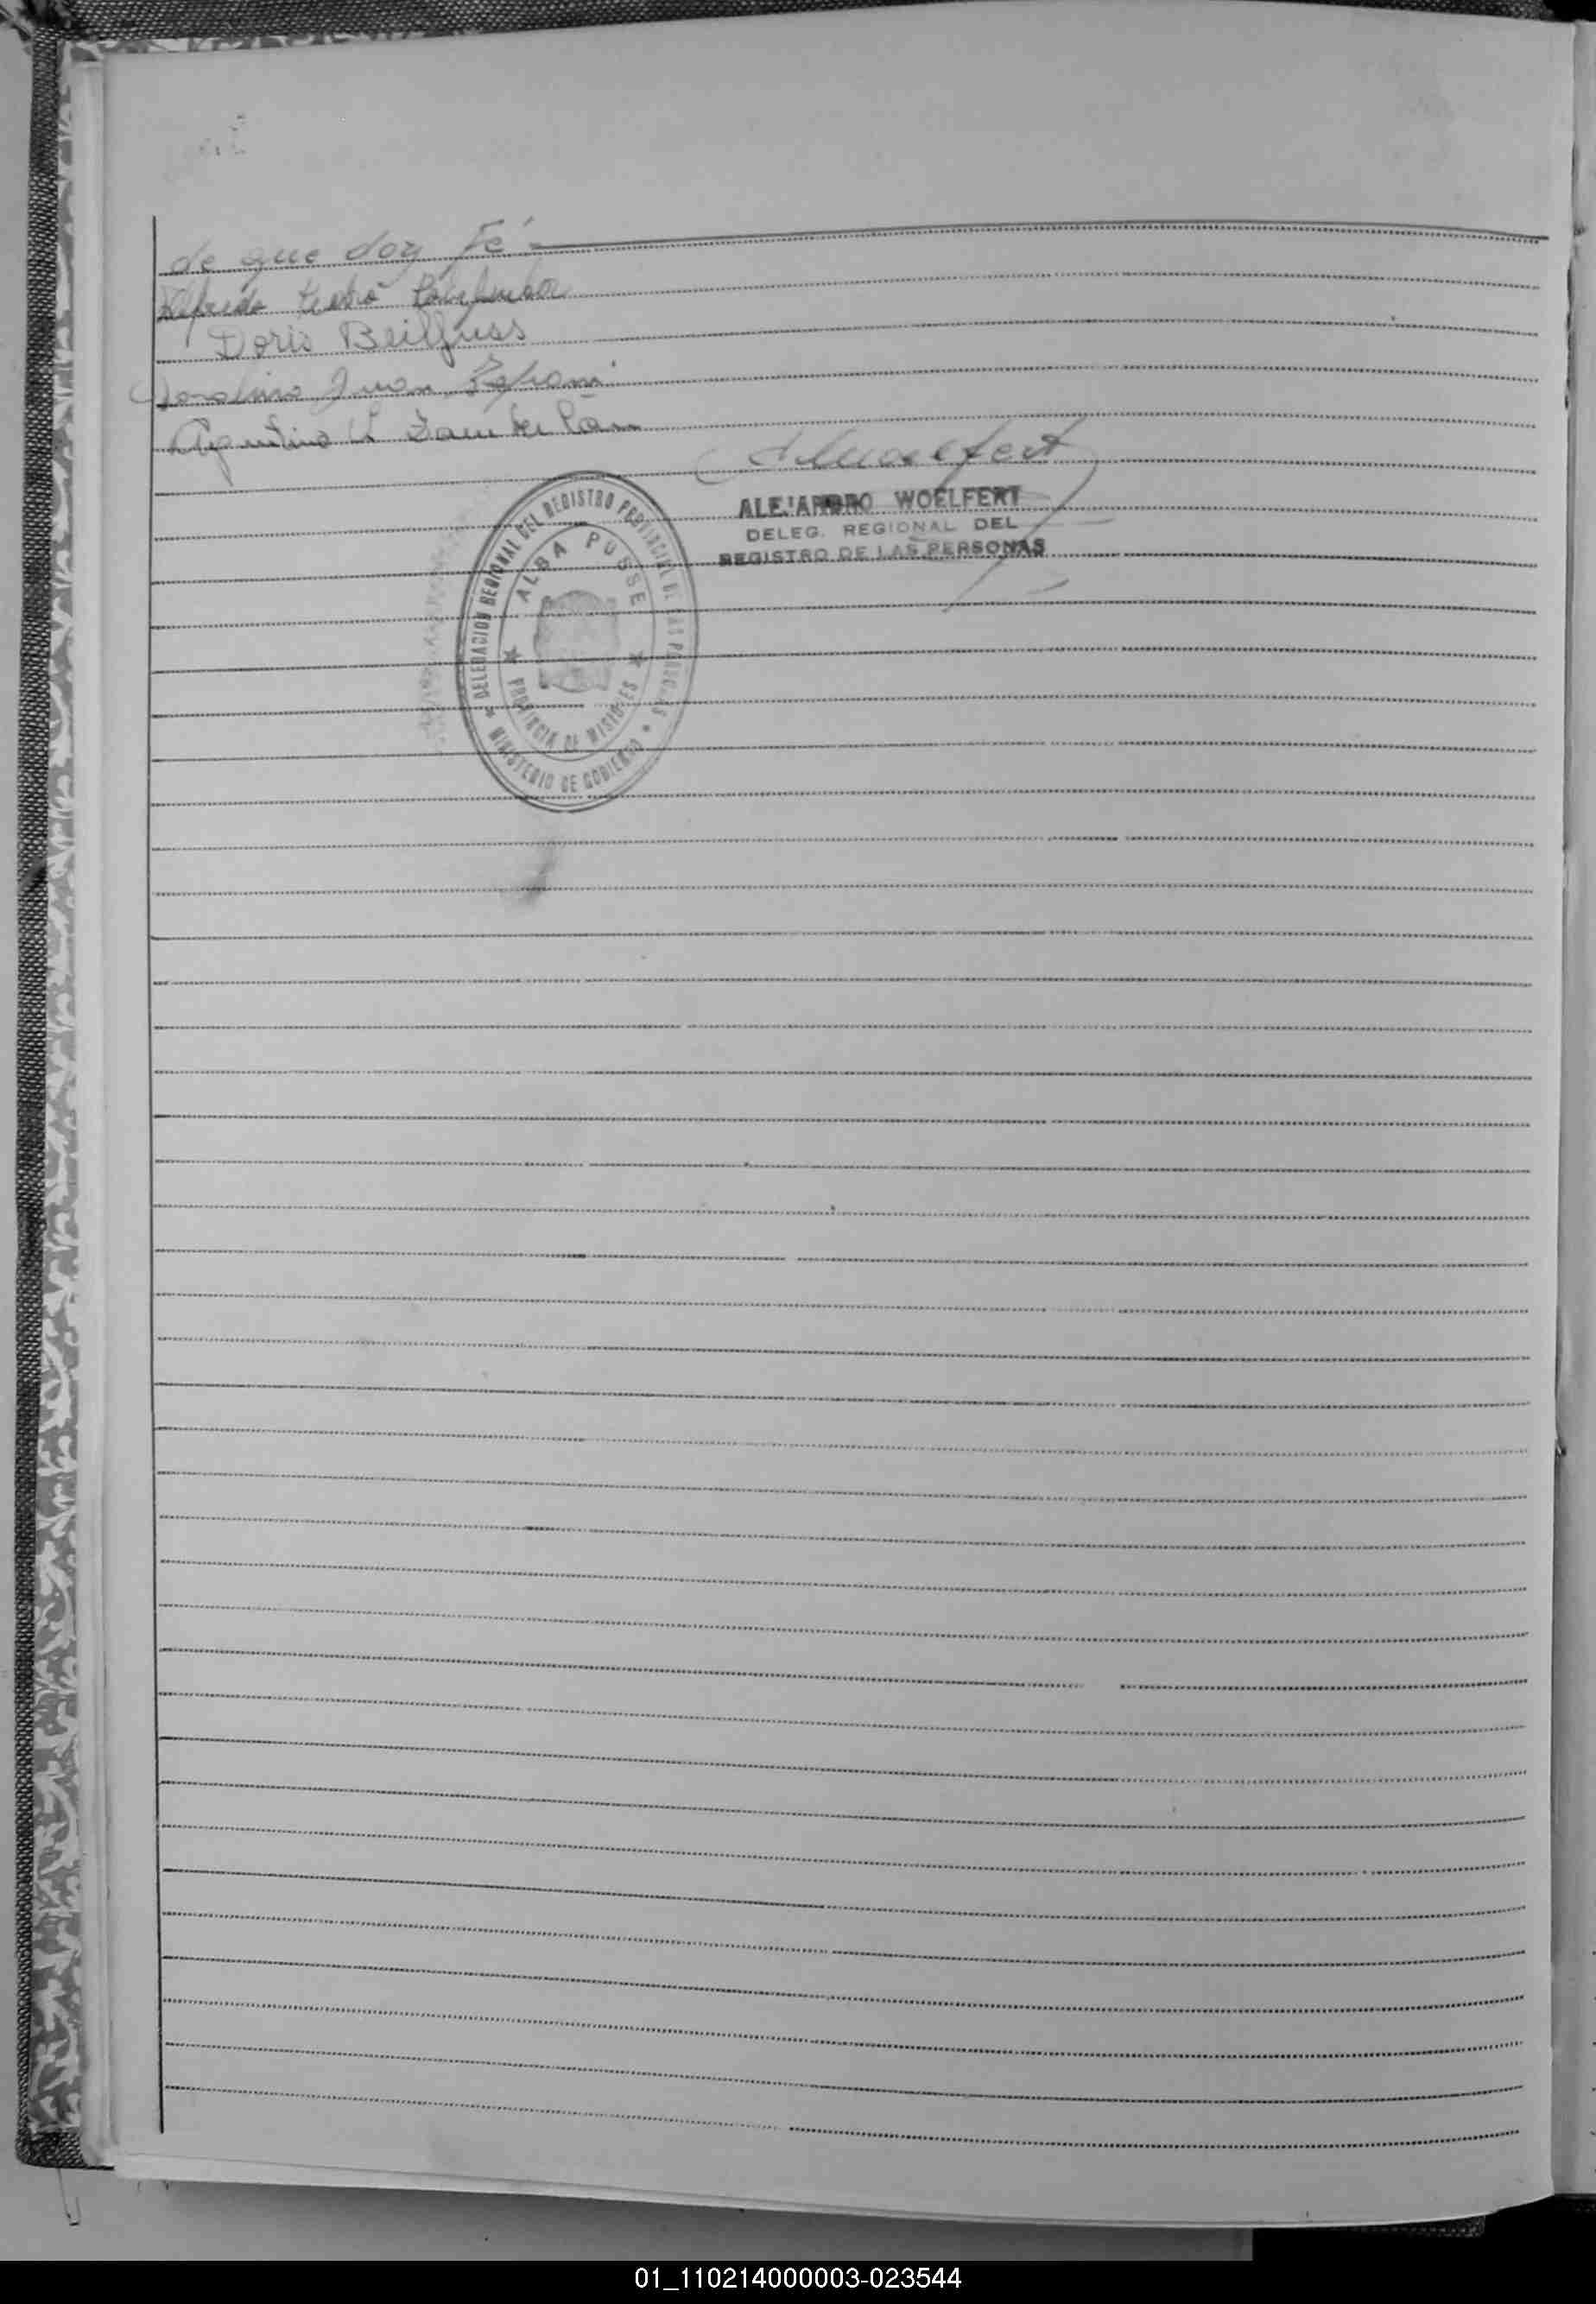 de que doy Fé
Alfredo
Doris Beilfuss
Juan
ALEJANDRO WOELFERT
DELEG. REGIONAL DEL
REGISTRO DE LAS PERSONAS
DELEGACION REGIONAL DEL REGISTRO PROVINCIAL DE LAS PERSONAS
ALBA POSSE
PROVINCIA DE MISIONES
MINISTERIO DE GOBIERNO
01_110214000003-023544